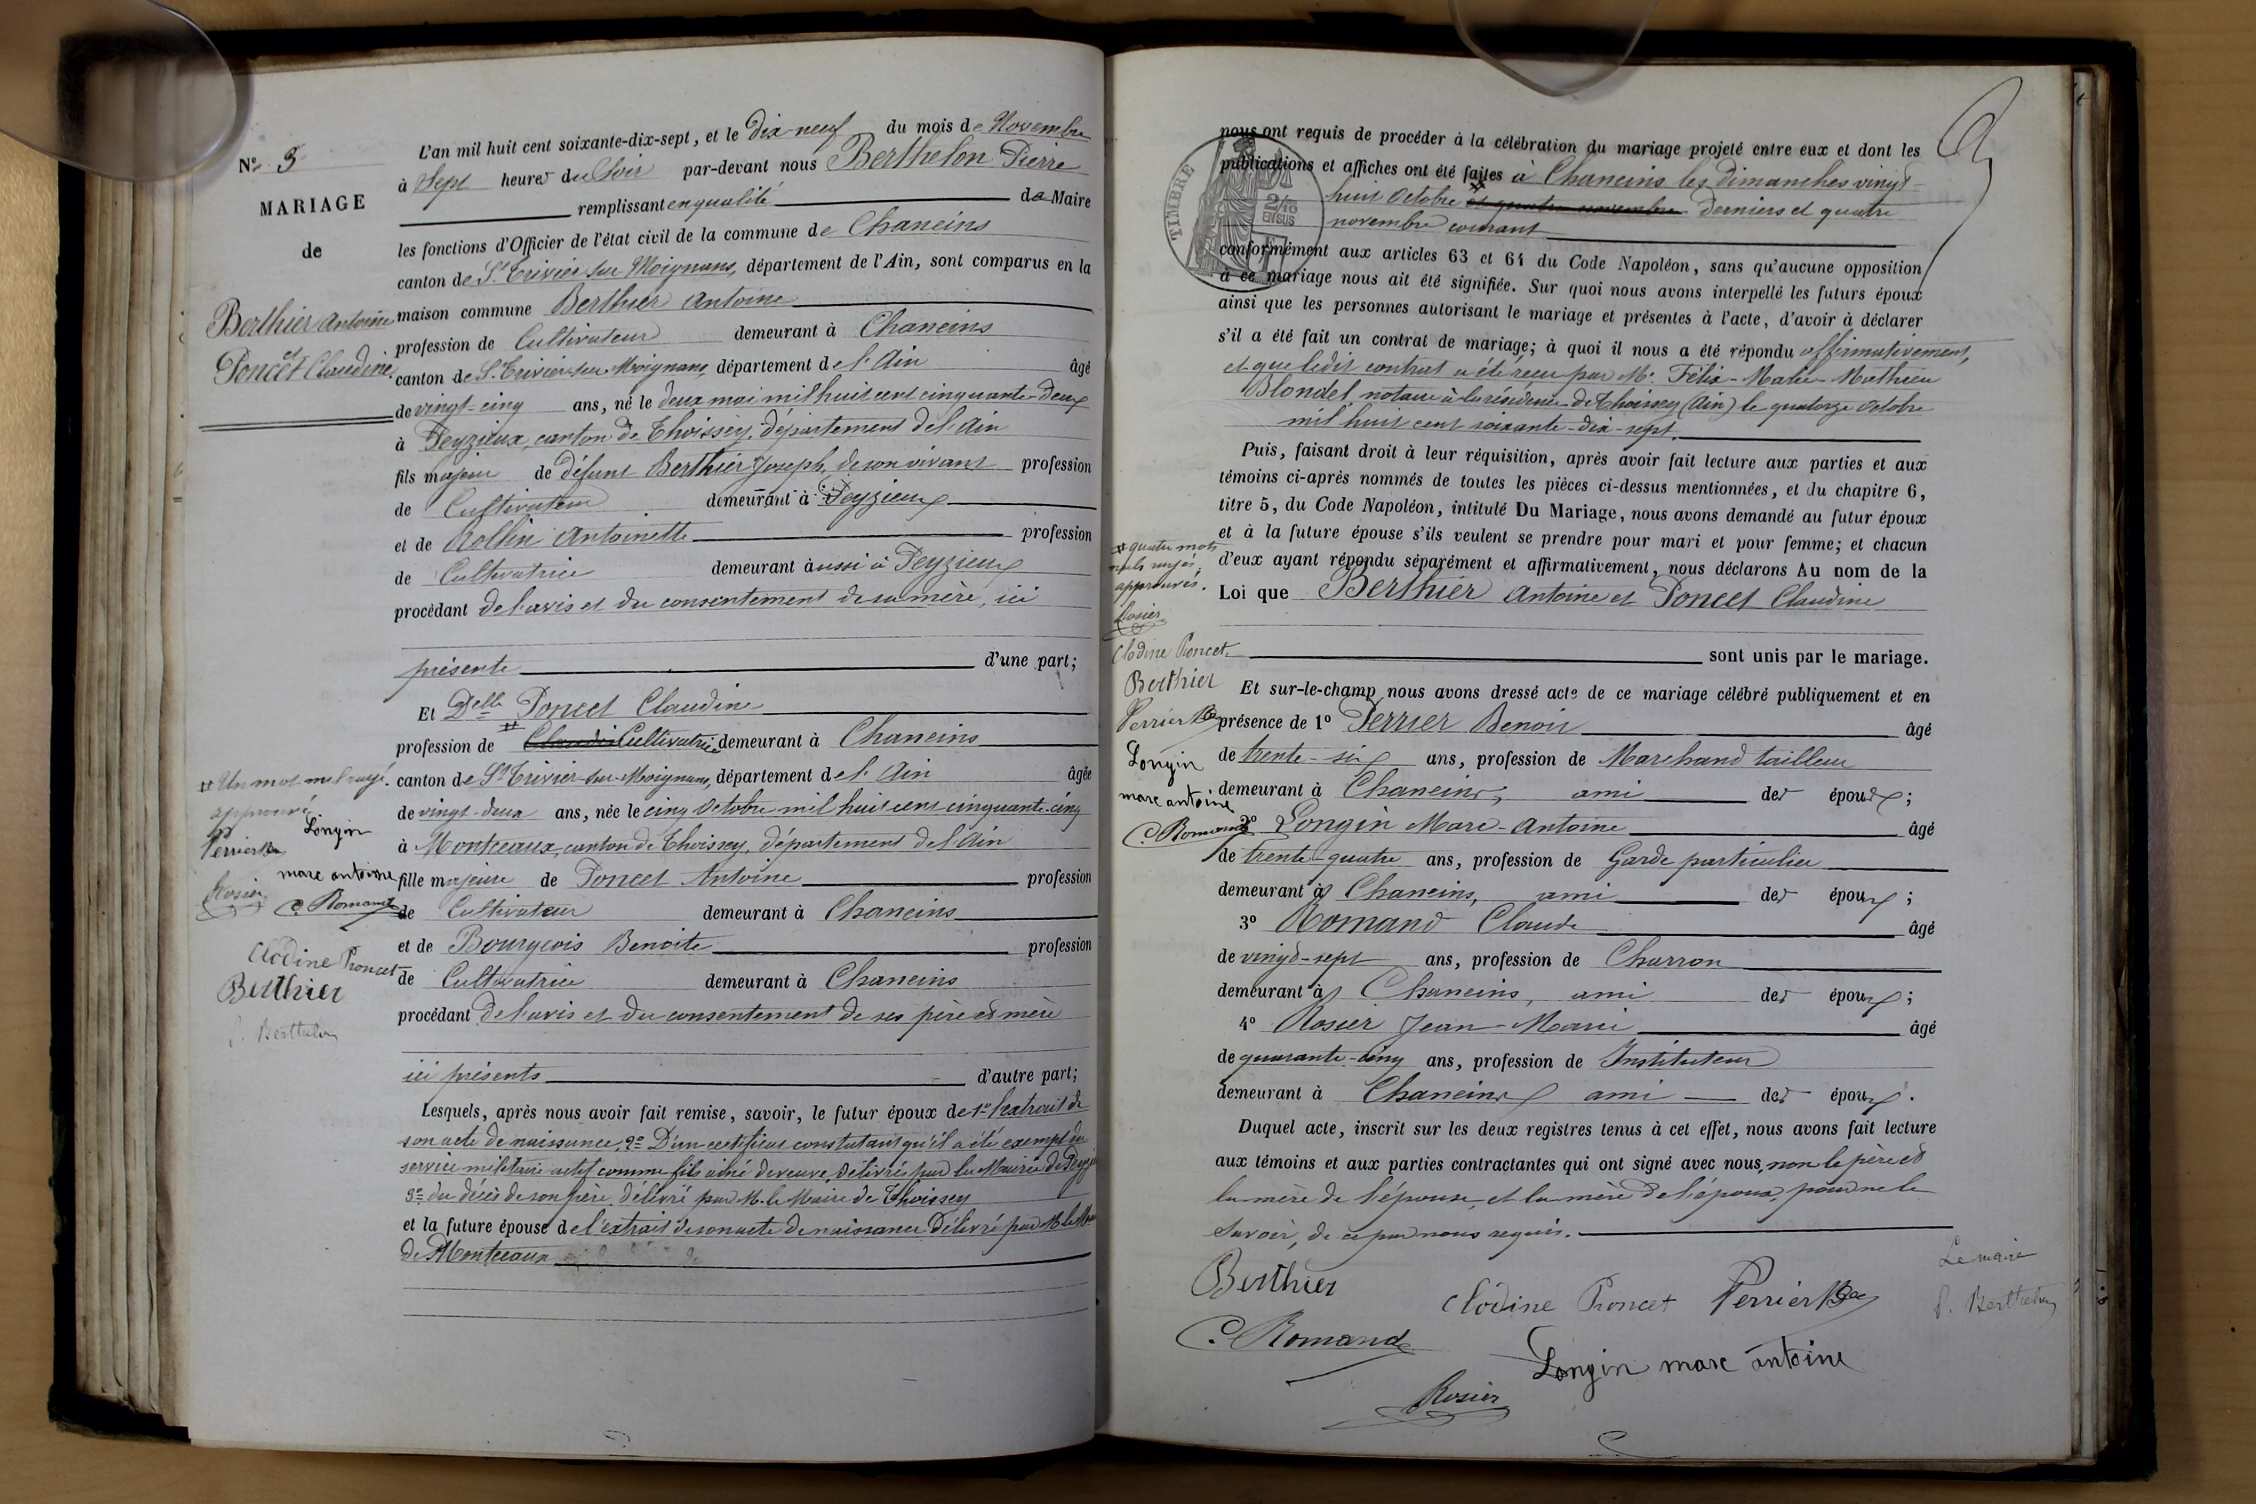 N° 3
MARIAGE
de
Berthier Antoine
et
Poncet Claudine
L'an mil huit cent soixante-dix-sept, et le Dix-neuf du mois de Novembre
à Sept heures du Soir par-devant nous Berthelon Pierre
remplissant en qualité de Maire
les fonctions d'Officier de l'état civil de la commune de Chaneins
canton de St Trivier sur Moignans, département de l'Ain, sont comparus en la
maison commune Berthier Antoine
profession de Cultivateur demeurant à Chaneins
canton de St Trivier-sur-Moignans, département de l'Ain âgé
de vingt-cinq ans, né le deux mai mil huit cent cinquante-deux
à Peyzieux, canton de Thoissey, département de l'Ain
fils majeur de défunt Berthier Joseph, de son vivant profession
de Cultivateur demeurant à Peyzieux
et de Rollin Antoinette profession
de Cultivatrice demeurant aussi à Peyzieux
procédant de l'avis et du consentement de sa mère, ici
présente d'une part;
Et Delle Poncet Claudine
profession de # Claudi Cultivatrice demeurant à Chaneins
canton de St Trivier-sur-Moignans, département de l'Ain âgée
de vingt-deux ans, née le cinq Octobre mil huit cent cinquante-cinq
à Montceaux, canton de Thoissey, département de l'Ain
fille majeure de Poncet Antoine profession
de Cultivateur demeurant à Chaneins
et de Bourgeois Benoite profession
de Cultivatrice demeurant à Chaneins
procédant de l'avis et du consentement de ses père et mère
ici présents d'autre part;
Lesquels, après nous avoir fait remise, savoir, le futur époux de 1° l'extrait de
son acte de naissance, 2° D'un certificat constatant qu'il a été exempt du
service militaire actif comme fils aîné de veuve, délivré par la Mairie de
3° du décès de son père, délivré par M. le Maire de Thoissey
et la future épouse de l'extrait de son acte de naissance délivré par M. le
de Montceaux
# Un mot nul rayé.
approuvé
Longin
Perrier Be
marc antoine
Rosier
C. Romand
Clodine Poncet
Berthier
P. Berthelon
TIMBRE
2/10
EN SUS
nous ont requis de procéder à la célébration du mariage projeté entre eux et dont les
publications et affiches ont été faites à Chaneins les dimanches vingt-
huit Octobre # et quatre novembre Derniers et quatre
novembre courant
conformément aux articles 63 et 64 du Code Napoléon, sans qu'aucune opposition
à ce mariage nous ait été signifiée. Sur quoi nous avons interpellé les futurs époux
ainsi que les personnes autorisant le mariage et présentes à l'acte, d'avoir à déclarer
s'il a été fait un contrat de mariage; à quoi il nous a été répondu affirmativement,
et que ledit contrat a été reçu par Me Félix-Marie-Mathieu
Blondel, notaire à la résidence de Thoissey (Ain) le quatorze Octobre
mil huit cent soixante-dix-sept.
Puis, faisant droit à leur réquisition, après avoir fait lecture aux parties et aux
témoins ci-après nommés de toutes les pièces ci-dessus mentionnées, et du chapitre 6,
titre 5, du Code Napoléon, intitulé Du Mariage, nous avons demandé au futur époux
et à la future épouse s'ils veulent se prendre pour mari et pour femme; et chacun
d'eux ayant répondu séparément et affirmativement, nous déclarons Au nom de la
Loi que Berthier Antoine et Poncet Claudine
sont unis par le mariage.
Et sur-le-champ nous avons dressé acte de ce mariage célébré publiquement et en
présence de 1° Perrier Benoit âgé
de trente-six ans, profession de Marchand tailleur
demeurant à Chaneins, ami des époux;
2° Longin Marc-Antoine âgé
de trente-quatre ans, profession de Garde particulier
demeurant à Chaneins, ami des époux;
3° Romand Claude âgé
de vingt-sept ans, profession de Charron
demeurant à Chaneins, ami des époux;
4° Rosier Jean-Marie âgé
de quarante-cinq ans, profession de Instituteur
demeurant à Chaneins ami des époux.
Duquel acte, inscrit sur les deux registres tenus à cet effet, nous avons fait lecture
aux témoins et aux parties contractantes qui ont signé avec nous, non le père et
la mère de l'épouse, et la mère de l'époux, pour ne le
savoir, de ce par nous requis.
# quatre mots
nuls rayés
approuvés.
Rosier
Clodine Poncet
Berthier
Perrier Be
Longin
marc antoine
C. Romand
Berthier
Clodine Poncet
Perrier Be
Le maire
P. Berthelon
C. Romand
Longin marc antoine
Rosier